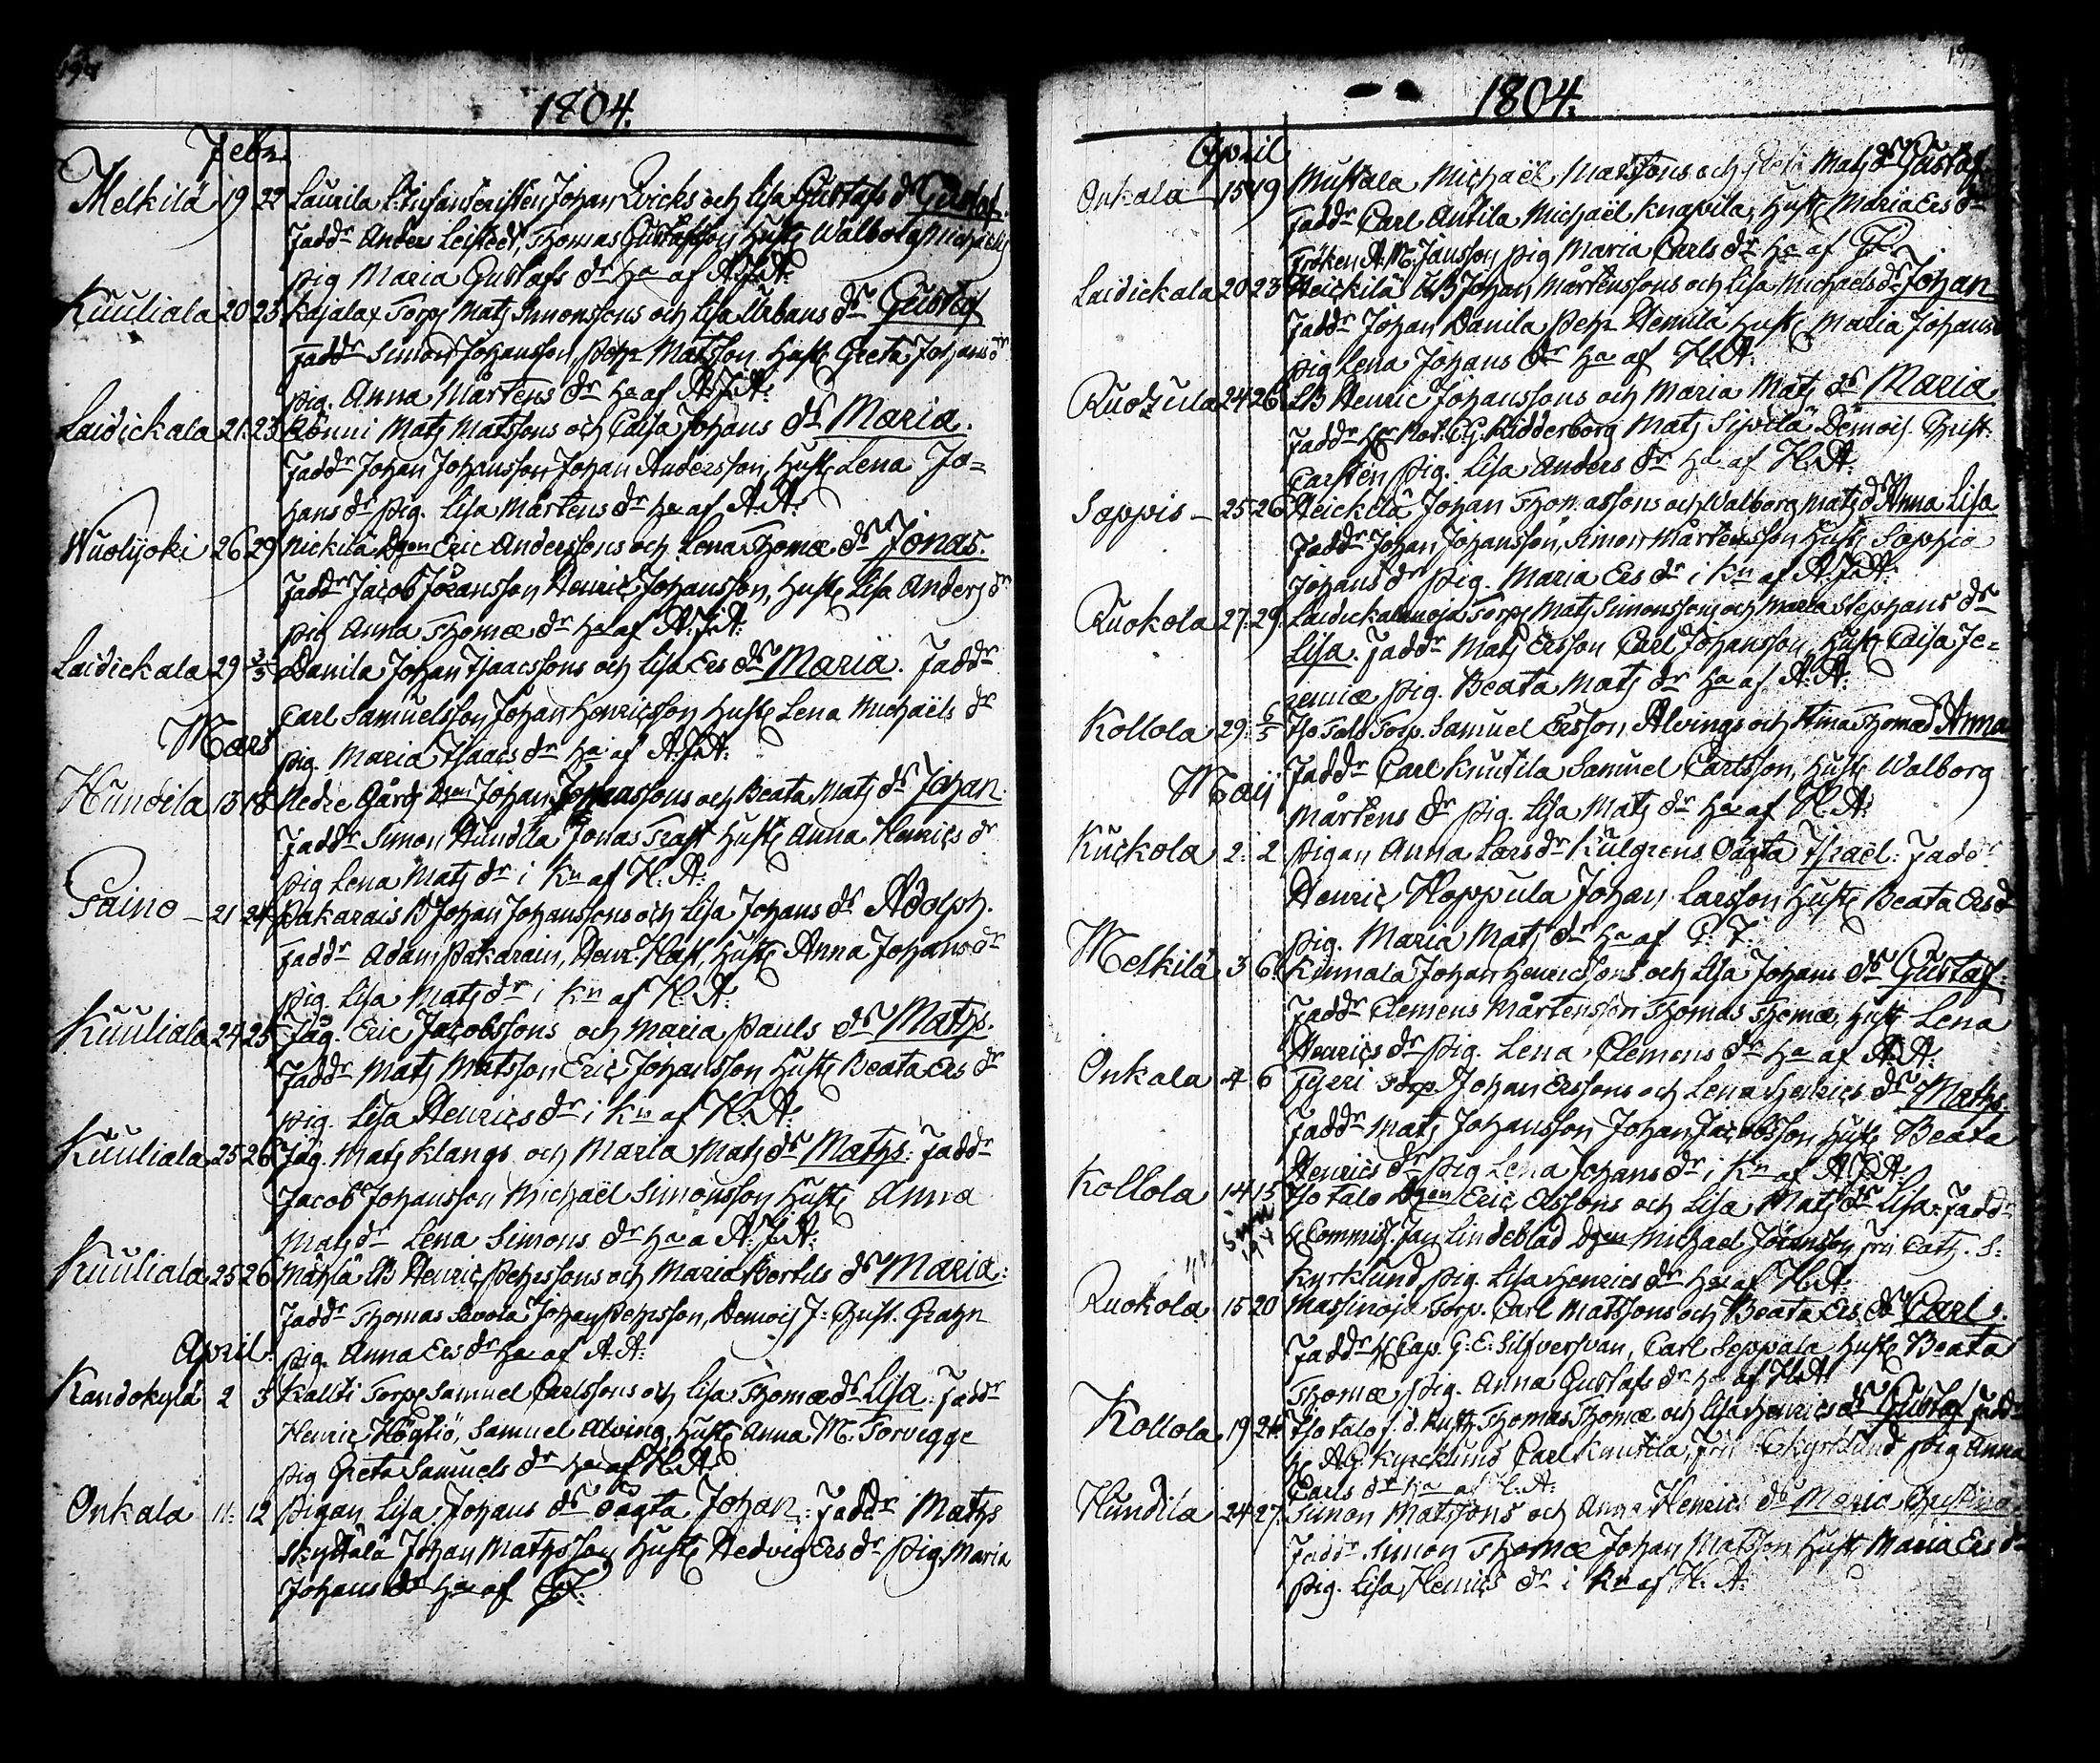 1804.
Febr.
Melkilä 19 22 Laurila Infanteristen Johan Qvicks och Lisa Gustafs dr Gustaf.
Faddr Anders Leistedt, Thomas Gustafsson Hustr Walborg Michaels
pig Maria Gustafs dr ha af A.J.A:
Kuuliala 20 23 Kajalax Torp Mats Simonssons och Lisa Urbans dr Gustaf
Faddr Simon Johansson, Pehr Matsson Hustr Greta Johans dr
pig. Anna Mårtens dr ha af A.J.A:
Laidickala 21 23 Rönni Mats Matssons och Caisa Johans dr Maria.
Faddr Johan Johansson Johan Andersson, Hustr Lena Jo=
hans dr pig. Lisa Mårtens dr ha af A.A:
Wuolijoki 26 29 Nickilä Dgen Eric Anderssons och Lena Thomæ dr Jonas.
Faddr Jacob Göransson Henric Johansson, Hustr Lisa Anders dr
pig Anna Thomæ dr ha af A.J.A:
Laidickala 29 3/3 Danila Johan Isaacssons och Lisa Ers dr Maria. Faddr
Carl Samuelsson Johan Henricsson Hustr Lena Michaëls dr
Mars
pig. Maria Isaacs dr ha af A.J.A:
Hundila 13 18 Nedre Gård Dgen Johan och Beata Mats dr Johan.
Faddr Simon Hundila Jonas Trast Hustr Anna Henrics dr
pig Lena Mats dr i Kn af H.A:
Taino 21 24 Pakarais B Johan Johanssons och Lisa Johans dr Adolph.
Faddr Adam Pakarain, Henr. Hast, Hustr Anna Johans dr
pig. Lisa Mats dr i Kn af H.A:
Kuuliala 24 25 Jäg. Eric Jacobssons och Maria Pauls dr Maths.
Faddr Mats Matsson Eric Johansson Hustr Beata Ers dr
pig. Lisa Henrics dr i Kn af H.A:
Kuuliala 25 26 Jäg. Mats Klangs och Maria Mats dr Maths: Faddr
Jacob Johansson Michaël Simonsson Hustr Anna
Mats dr Lena Simons dr ha a A.J.A:
Kuuliala 25 26 Mattila B Henric Pehrssons och Maria Bertils dr Maria:
Faddr Thomas Savola Johan Pehrsson, Demois J: Christ. Grahn
April
pig. Anna Ers dr ha af A.A:
Kandokylä 2 3 Kallti Torp Samuel Carlssons och Lisa Thomæ dr Lisa. Faddr
Henric Högliö, Samuel Alving, Hustr Anna M. Torvigge
pig Greta Samuels dr ha af H.A:
Onkala 11 12 Pigan Lisa Johans dr oägta Johan: Faddr Maths
Skyttälä Johan Mathsson Hustr Hedvig Ers dr pig. Maria
Johans dr ha af G.F:
1804.
April
Onkala 15 19 Mustala Michaël och Mats dr Gustaf
Faddr Carl Antila Michaël Knapila, Hustr Maria Ers dr
Fröken A.M. Jansson pig Maria Carls dr ha af
Laidickala 20 23 Heickilä Johan Mårtenssons och Lisa Michaels dr Johan
Faddr Johan Danila Pehr Hemilä Hustr Maria Johans
pig Lena Johans dr ha af H.A:
24 26 B Henric Johanssons och Maria Mats dr Maria
Faddr Hr C.G. Ridderborg Mats Sipilä Demois. Christ:
Carsten pig. Lisa Anders dr ha af H.A:
Sappis 25 26 Heickilä Johan Thomassons och Walborg Mats dr Anna Lisa
Faddr Johan Johansson, Simon Mårtensson Hustr Sophia
Johans dr pig. Maria Ers dr i Kn af A.J.A:
Ruokola 27 29 Torp Mats Simonssons och Maria Stephans dr
Lisa. Faddr Mats Ersson Carl Johansson, Hustr Caisa Je=
remiæ pig. Beata Mats dr ha af A.A:
Kollola 29 6/5 Iso Talo Torp. Samuel Ersson Alvings och Thomæ Anna
Faddr Carl Knutila Samuel Carlsson, Hustr Walborg
Maij
Mårtens dr pig. Lisa Mats dr ha af H.A:
Kuckola 2 2 Pigan Anna Lars dr Kulgrens Oägta Israël: Faddr
Henric Hoppula Johan Larsson Hustr Beata Ers dr
pig. Maria Mats dr ha af
Melkilä 3 6 Kinnala Johan Henricssons och Lisa Johans dr Gustaf:
Faddr Clemens Mårtensson Thomas Thomæ, Hustr Lena
Henrics dr pig. Lena Clemens dr ha af A.A:
Onkala 4 6 Torp Johan Erssons och Lena Henrics dr Maths.
Faddr Mats Johansson Johan Jacobsson Hustr Beata
Henrics dr pig Lena Johans dr i Kn af A.J.A:
Kollola 14 15 Iso Talo Dgen Eric Erssons och Lisa Mats dr Lisa. Faddr
H Commiss. Jan Lindeblad Dgen Michael Göransson fru Cath. S:
Kyrklund, pig. Lisa Henrics dr ha af H.A:
Ruokola 15 20 Massinoja Torp. Carl Matssons och Beata Ers dr Carl:
Faddr H Cap. G: E: Silfversvan, Carl Seppala Hustr Beata
Thomæ pig. Anna Gustafs dr ha af H.A:
Kollola 19 24 Iso talo Thomas Thomæ och Lisa Henrics dr Gustaf Faddr
H A.G. Kyrcklund Carl Knutila, Kyrklund pig Anna
Carls dr ha af H.A:
Hundila 24 27 Simon Matssons och Anna Henrics dr Maria Christina
Faddr Simon Thomæ Johan Matsson Hustr Maria Ers dr
pig. Lisa Henrics dr i Kn af H.A: